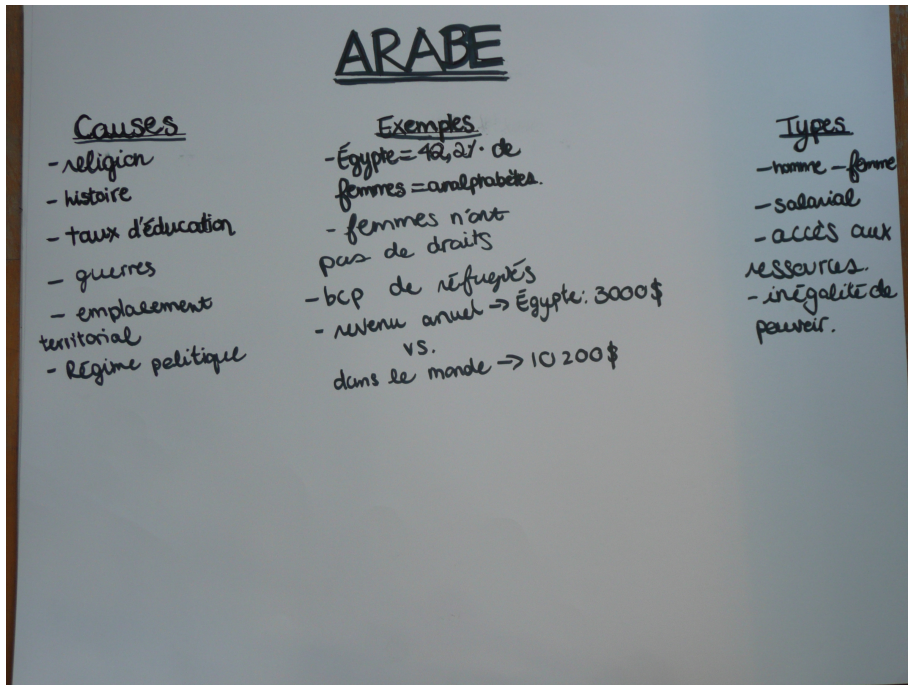 ARABE
Causes
- religion
- histoire
- taux d'éducation
- guerres
- emplacement
territorial
- Régime politique
Exemples
- Égypte = 42,2% de
femmes = analphabètes.
- femmes n'ont
pas de droits
- bcp de réfugiés
- revenu anuel -> Égypte: 3000$
vs.
dans le monde -> 10 200$
Types
- homme - femme
- salarial
- accès aux
ressources.
- inégalité de
pouvoir.